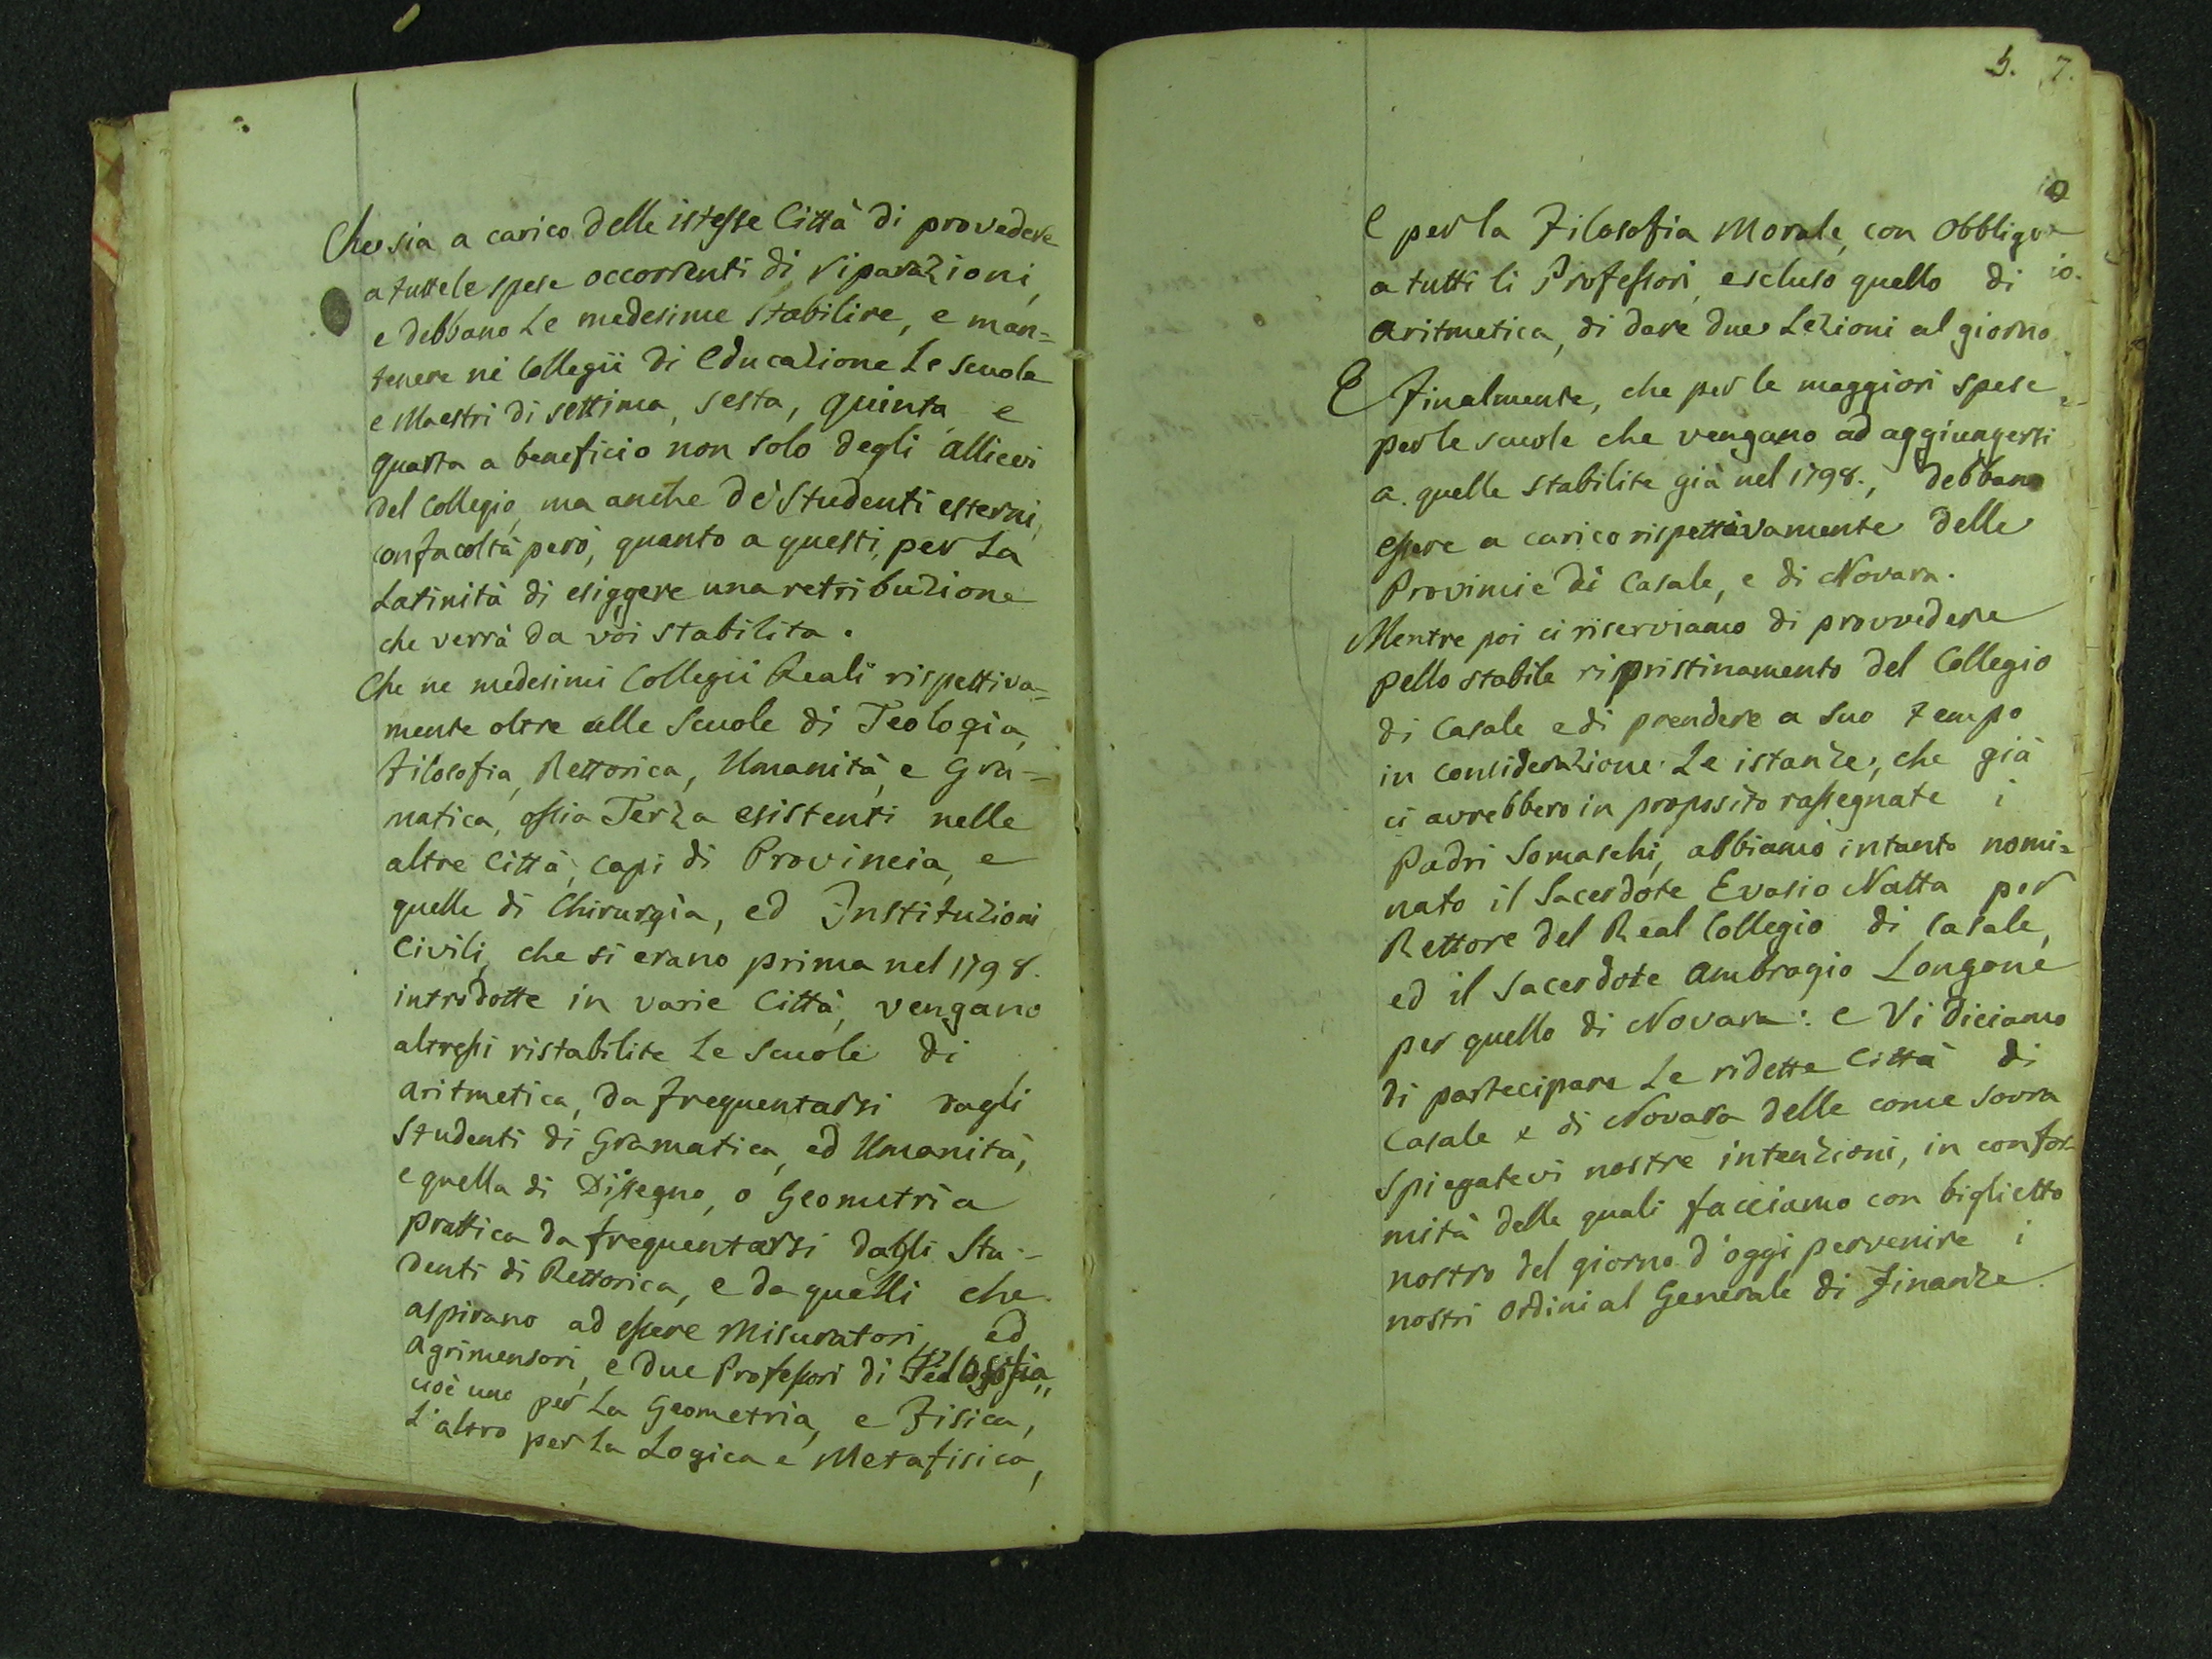 Che sia a carico delle istesse Città di provedere
a tutte le spese occorrenti di riparazioni,
e debbano Le medesime stabilire, e man=
tenere ne Collegii di Educazione Le scuole
e Maestri di settima, sesta, quinta, e
quarta a beneficio non solo degli allievi
del Collegio, ma anche de' Studenti esterni,
con facoltà però, quanto a questi, per La
Latinità di esiggere una retribuzione
che verrà da voi stabilita.
Che ne medesimi Collegii Reali rispettiva=
mente oltre alle Scuole di Teologia,
Filosofia, Rettorica, Umanità, e Gra=
matica, ossia Terza esistenti nelle
altre Città, capi di Provincia, e
quelle di Chirurgia, ed Instituzioni
Civili, che si erano prima nel 1798.
introdotte in varie Città, vengano
altresi ristabilite Le Scuole di
aritmetica, da frequentarsi dagli
Studenti di Gramatica, ed Umanità,
e quella di Dissegno, o Geometria
prattica da frequentarsi dagli Stu=
denti di Rettorica, e da quelli che
aspirano ad essere Misuratori, ed
Agrimensori, e due Professori di Filosofia,,
cioè uno per La Geometria, e Fisica,
L'altro per La Logica e Metafisica,
5. 7.
e per la Filosofia Morale, con obbligo
a tutti li Professori, escluso quello di
aritmetica, di dare due Lezioni al giorno
E finalmente, che per le maggiori spese
per le scuole che vengano ad aggiungersi
a quelle stabilite già nel 1798., debbano
essere a carico rispettivamente delle
Provincie di Casale, e di Novara.
Mentre poi ci riserviamo di provvedere
pello stabile ripristinamento del Collegio
di Casale e di prendere a suo tempo
in considerazione Le istanze, che già
ci avrebbero in proposito rassegnate i
Padri Somaschi, abbiamo intanto nomi=
nato il Sacerdote Evasio Natta per
Rettore del Real Collegio di Casale,
ed il Sacerdote Ambrogio Longone
per quello di Novara: e Vi diciamo
di partecipare Le ridette Città di
Casale e di Novara delle come sovra
spiegatevi nostre intenzioni, in confor=
mità delle quali facciamo con biglietto
nostro del giorno d'oggi pervenire i
nostri ordini al Generale di Finanze.